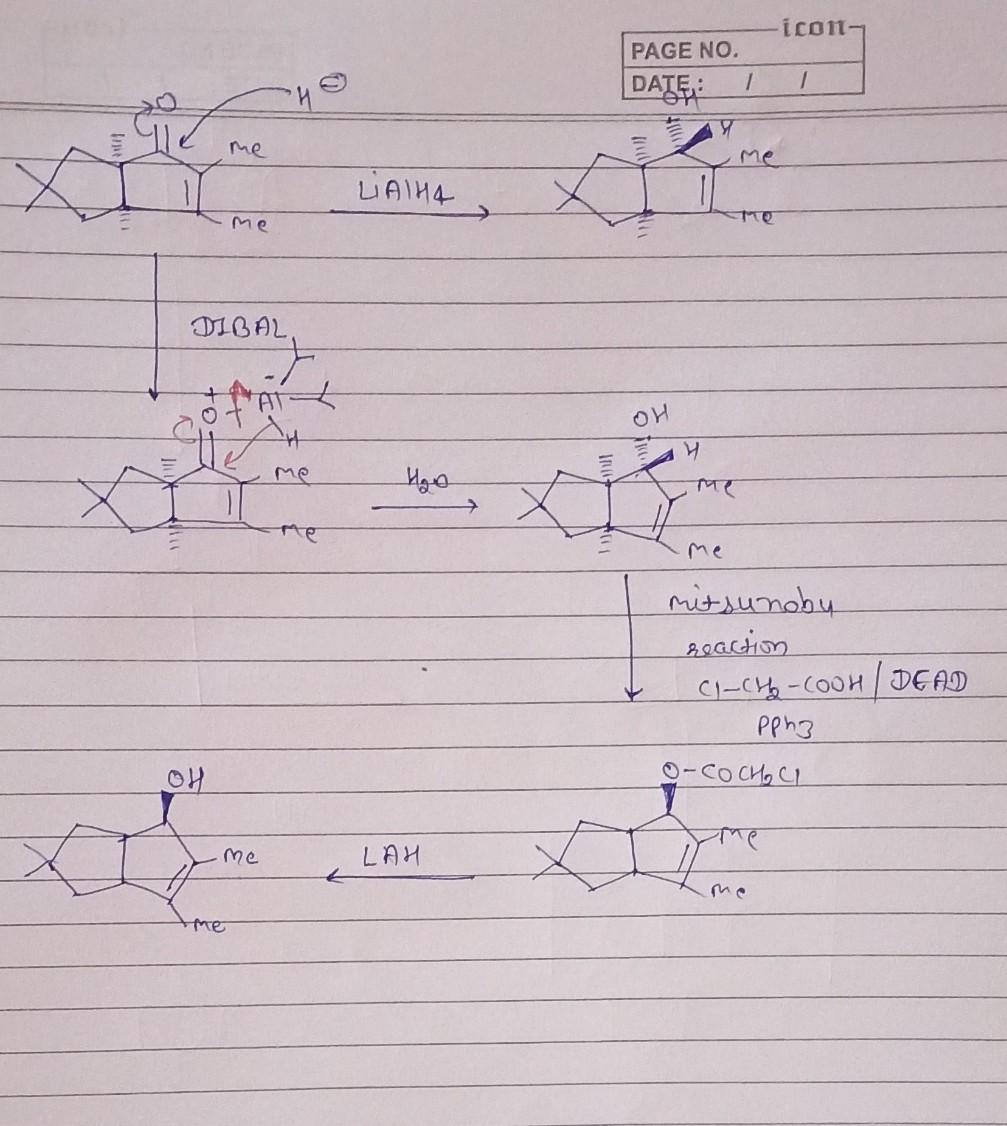 icon
PAGE NO.
DATE: / /
O H ⊖
OH
H
Me
Me
LiAlH4
Me
Me
DIBAL
+ -
O Al
H
Me
Me
H2O
OH
H
Me
Me
mitsunobu
reaction
Cl-CH2-COOH / DEAD
PPh3
OH
Me
Me
LAH
O-COCH2Cl
Me
Me